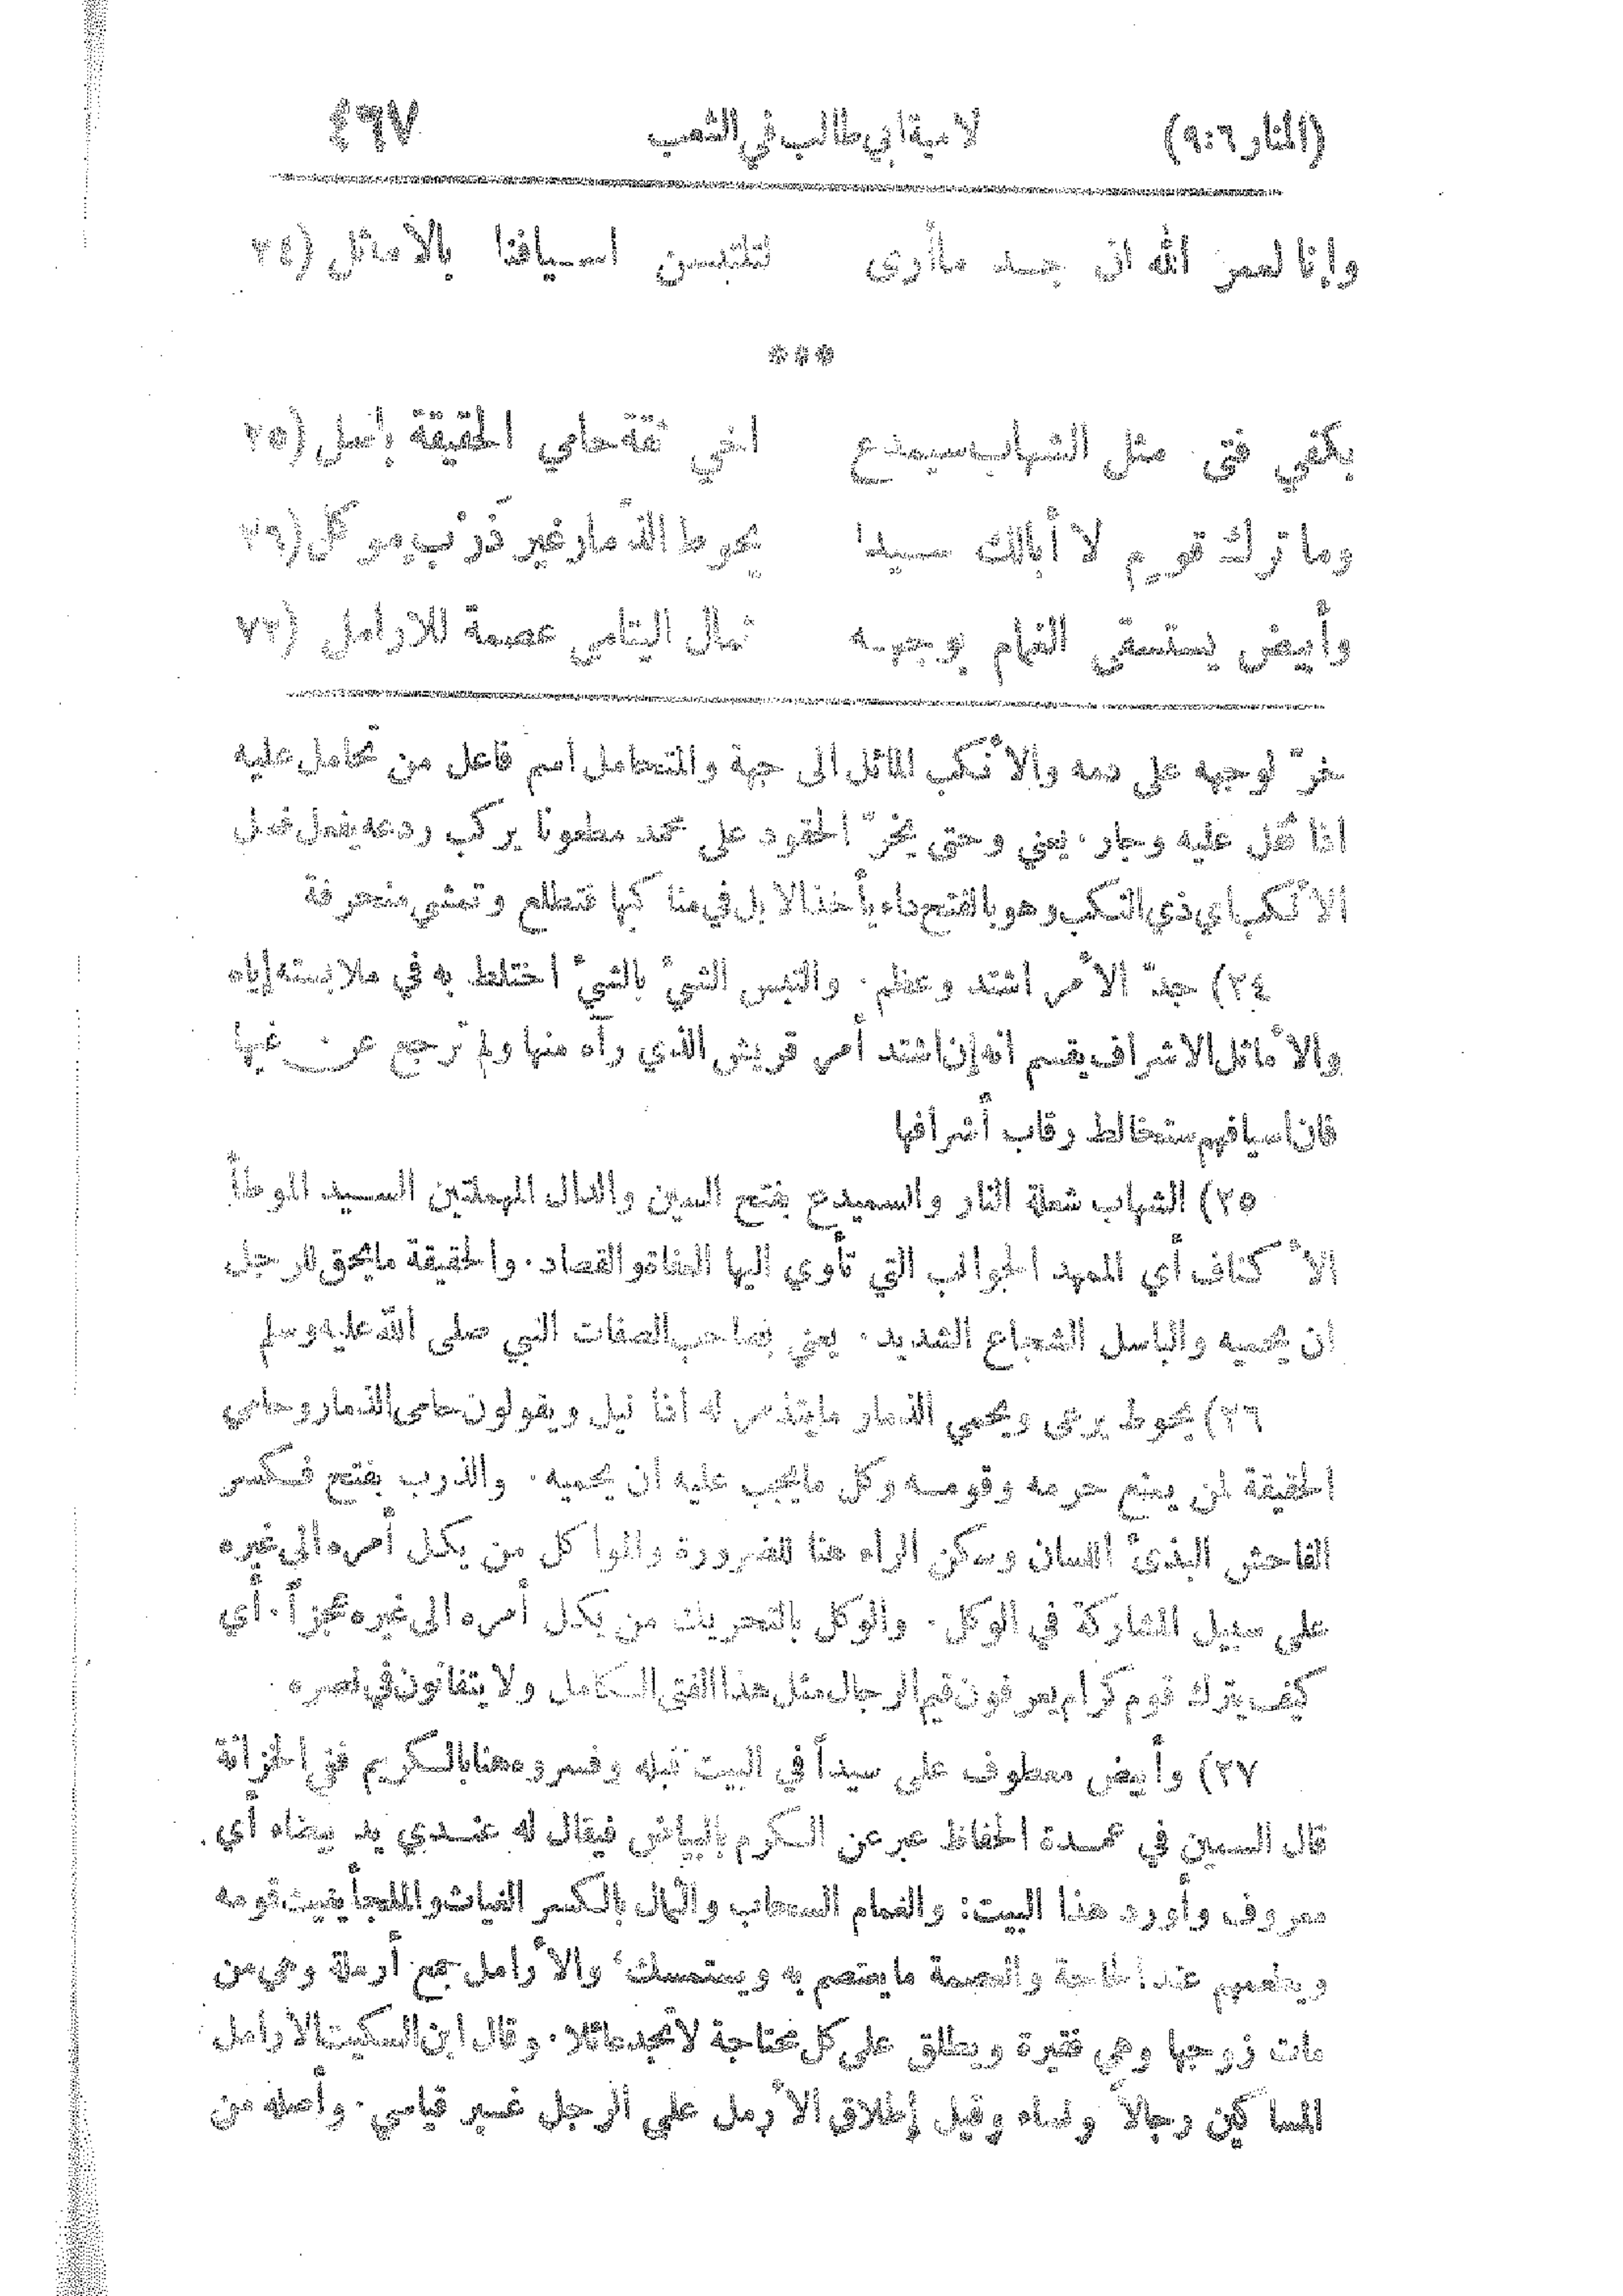 (المنار ٦:٩) لامية ابي طالب في الشعب ٤٦٧
وإنا لعمر الله ان جد ما أرى لتلتبسن اسيافنا بالأماثل (٢٤
***
بكفي فتى مثل الشهاب سميدع اخي ثقة حامي الحقيقة باسل (٢٥
وما ترك قوم لا أبالك سيدا يحوط الذمار غير ذرْب مواكل (٢٦
وأبيض يستسقى الغمام بوجهه ثمال اليتامى عصمة للارامل (٢٧
خرّ لوجهه على دمه والأنكب المائل الى جهة والمتحامل اسم فاعل من تحامل عليه
اذا ثقل عليه وجار. يعني وحتى يخرّ الحقود على محمد مطعونا يركب ردعه يفعل فعل
الأنكب اي ذي النكب وهو بالفتح داء يأخذ الابل في مناكبها فتظلع وتمشي منحرفة
٢٤) جدّ الأمر اشتد وعظم. والتبس الشيُ بالشيُ اختلط به في ملابسته إياه
والأماثل الاشراف يقسم انه إن اشتد أمر قريش الذي رآه منها ولم ترجع عن غيها
فان اسيافهم ستخالط رقاب أشرافها
٢٥) الشهاب شعلة النار والسميدع بفتح السين والدال المهملتين السيد الموطأ
الأكناف أي الممهد الجوانب التي تأوي اليها العفاة والقصاد. والحقيقة ما يحق للرجل
ان يحميه والباسل الشجاع الشديد. يعني بصاحب الصفات النبي صلى الله عليه وسلم
٢٦) يحوط يرعى ويحمي الذمار ما يتذمر له اذا نيل ويقولون حامى الذمار وحامي
الحقيقة لمن يمنع حرمه وقومه وكل ما يجب عليه ان يحميه. والذرب بفتح فكسر
الفاحش البذئ اللسان وسكن الراء هنا للضرورة والمواكل من يكل أمره الى غيره
على سبيل المشاركة في الوكل. والوكل بالتحريك من يكل أمره الى غيره عجزاً. أي
كيف يترك قوم كرام يعرفون قيم الرجال مثل هذا الفتى الكامل ولا يتفانون في نصره.
٢٧) وأبيض معطوف على سيداً في البيت قبله وفسروه هنا بالكريم ففي الخزانة
قال السمين في عمدة الحفاظ عبر عن الكرم بالبياض فيقال له عندي يد بيضاء أي
معروف وأورد هذا البيت: والغمام السحاب والثمال بالكسر الغياث والملجأ يغيث قومه
ويطعمهم عند الحاجة والعصمة ما يعتصم به ويستمسك، والأرامل جمع أرملة وهي من
مات زوجها وهي فقيرة ويطلق على كل محتاجة لا تجد عائلا. وقال ابن السكيت الأرامل
المساكين رجالاً ونساء وقيل إطلاق الأرمل على الرجل غير قياسي. وأصله من